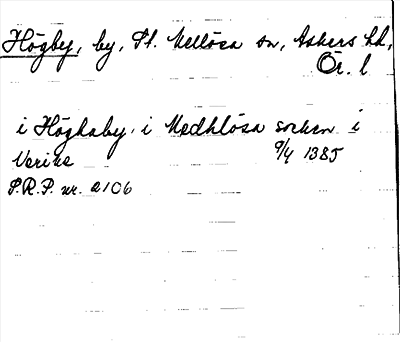 Högby, by, St. Mellösa sn, Askers hd,
Ör. l
i Höghaby i Medhlösa sochen i
Verike 9/4 1385
S.R.P. nr. 2106